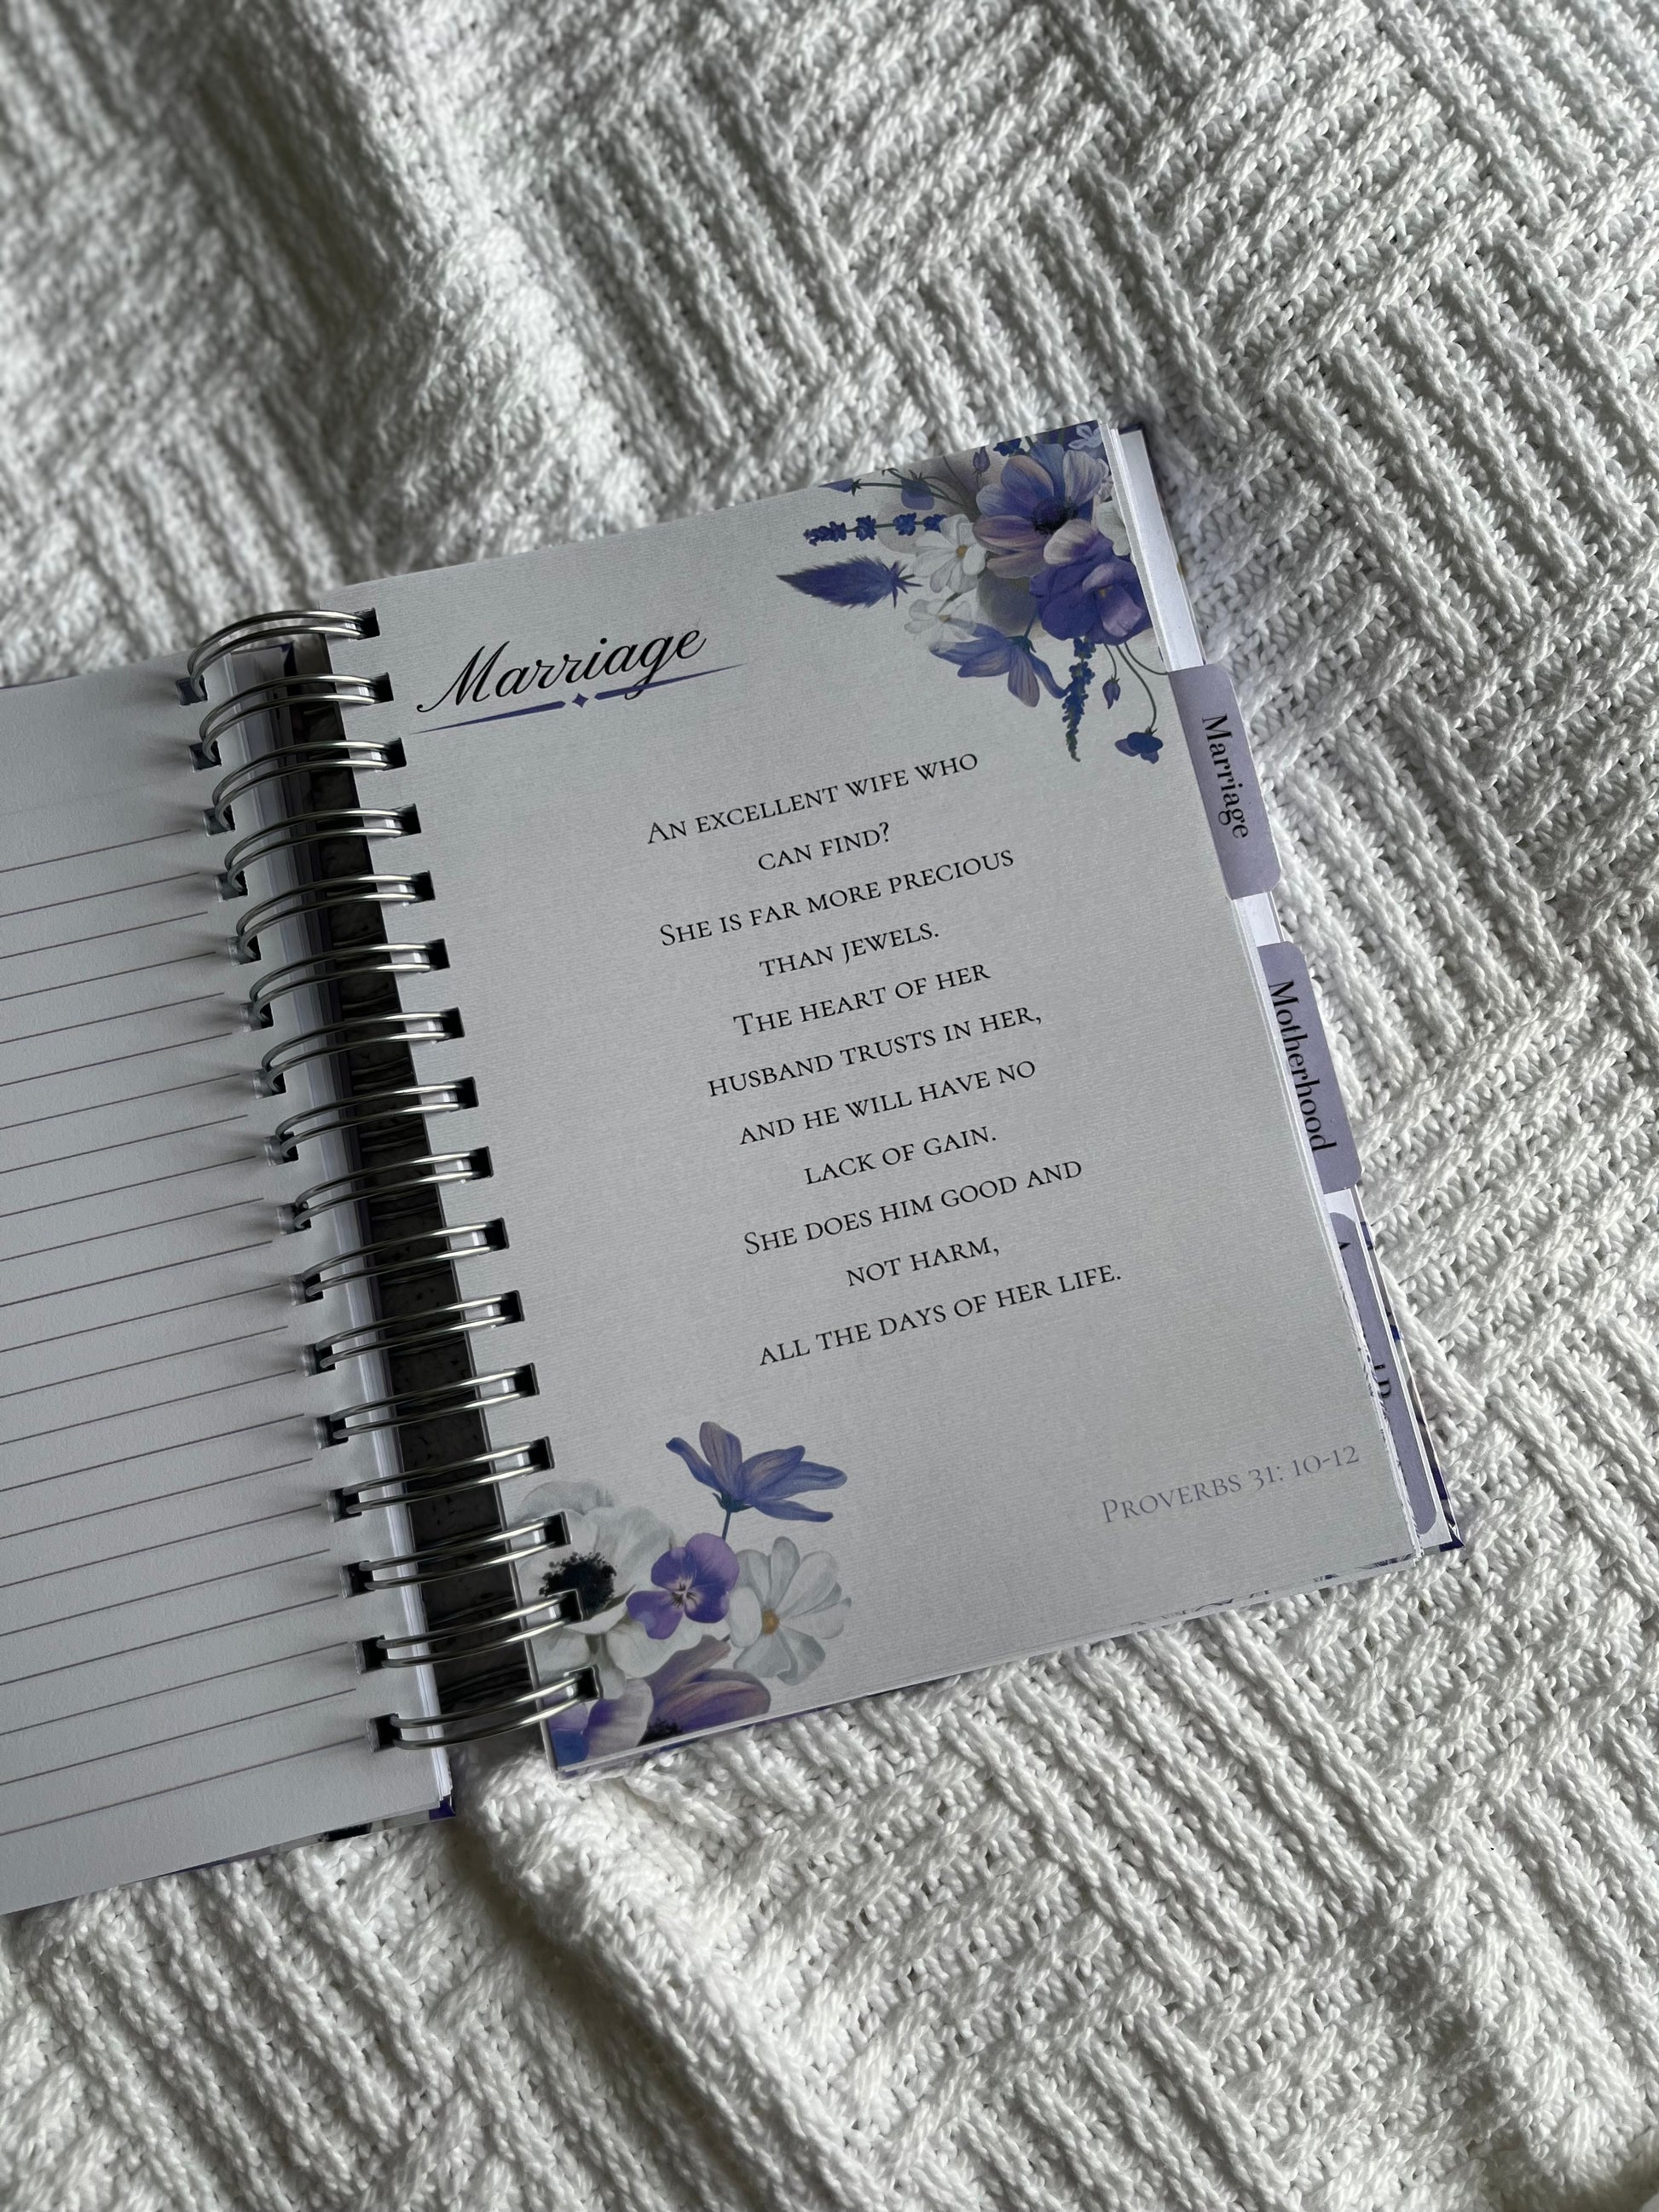 Marriage
An excellent wife who
can find?
She is far more precious
than jewels.
The heart of her
husband trusts in her,
and he will have no
lack of gain.
She does him good and
not harm,
all the days of her life.
Proverbs 31: 10-12
Marriage
Motherhood